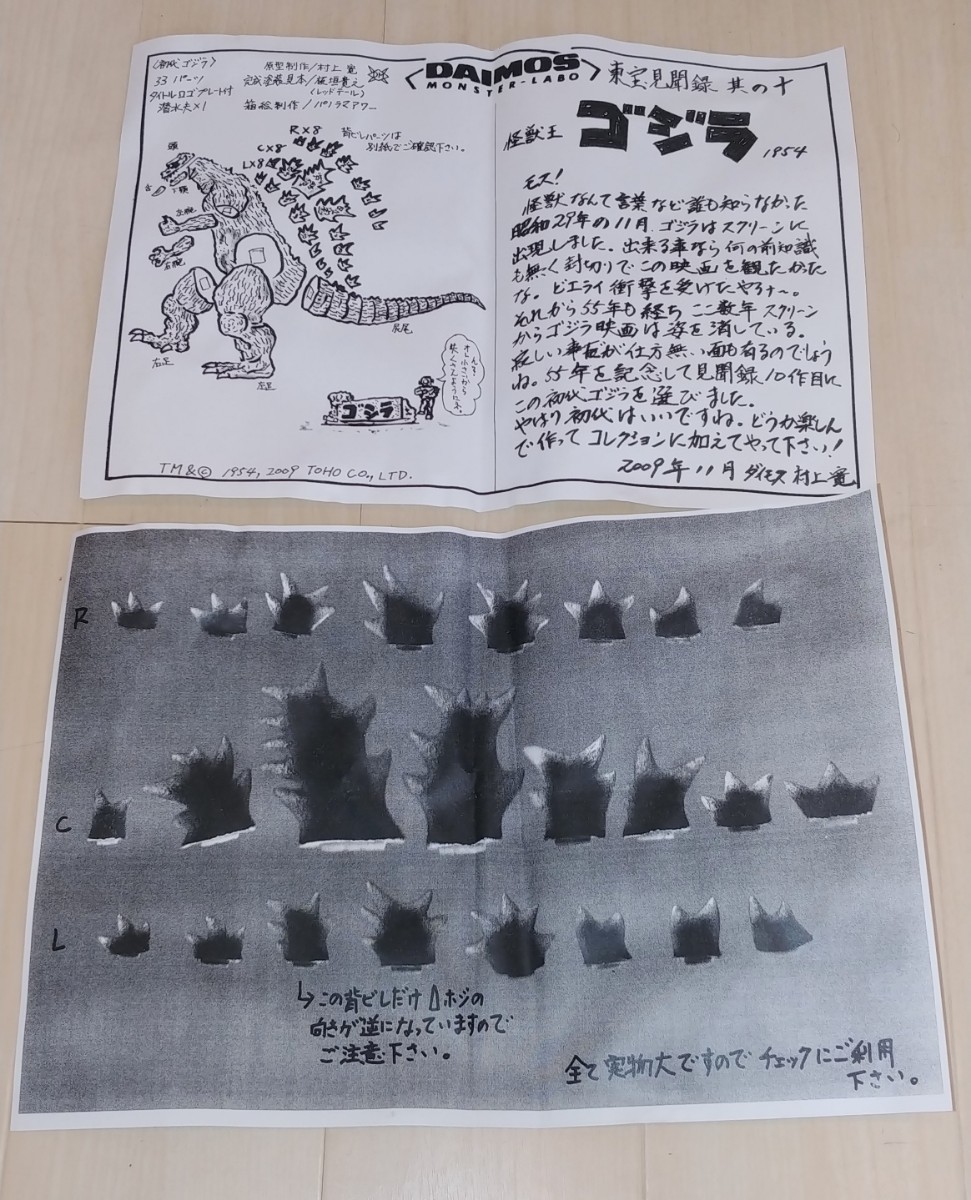 〈初代ゴジラ〉
33パーツ
タイトルロゴプレート付
潜水夫×1
原型制作/村上寛
完成塗装見本/板垣貴之
(レッドテール)
箱絵制作/パノラマアワー
R×8
C×8
L×8
背ビレパーツは
別紙でご確認下さい。
頭
舌
下顎
左腕
右腕
右足
左足
尻尾
ゴジラ
TM&© 1954, 2009 TOHO CO., LTD.
DAIMOS
MONSTER-LABO
東宝見聞録 其の十
怪獣王
ゴジラ
1954
モス!
怪獣なんて言葉など誰も知らなかった
昭和29年の11月、ゴジラはスクリーンに
出現しました。出来る事なら何の前知識
も無く封切りでこの映画を観たかった
な。ドエライ衝撃を受けたやろナ〜。
それから55年も経ち ここ数年 スクリーン
からゴジラ映画は姿を消している。
寂しい事だが仕方無い面も有るのでしょう
ね。55年を記念して見聞録10作目に
この初代ゴジラを選びました。
やはり初代はいいですね。どうか楽しん
で作ってコレクションに加えてやって下さい!
2009年11月 ダイモス 村上寛
R
C
L
この背ビレだけ
ホジの
向きが逆になっていますので
ご注意下さい。
全て実物大ですのでチェックにご利用
下さい。